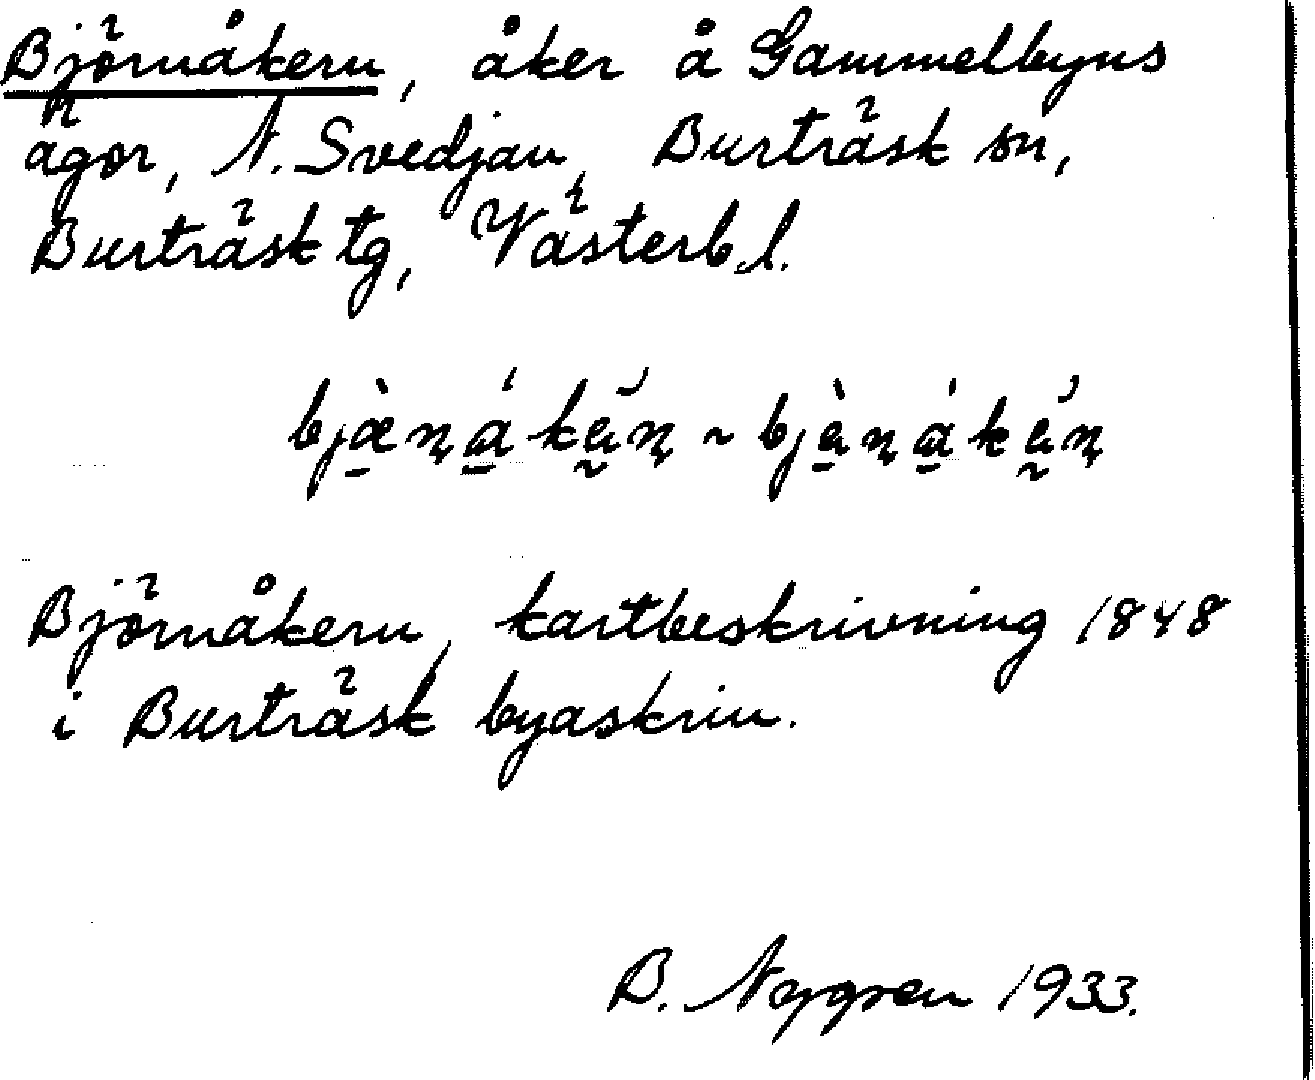 Björnåkern, åker å Gammelbyns
ägor, N. Svedjan, Burträsk sn,
Burträsk tg, Västerb. l.
Björnåkern, kartbeskrivning 1848
i Burträsk byaskrin.
B. Nygren 1933.